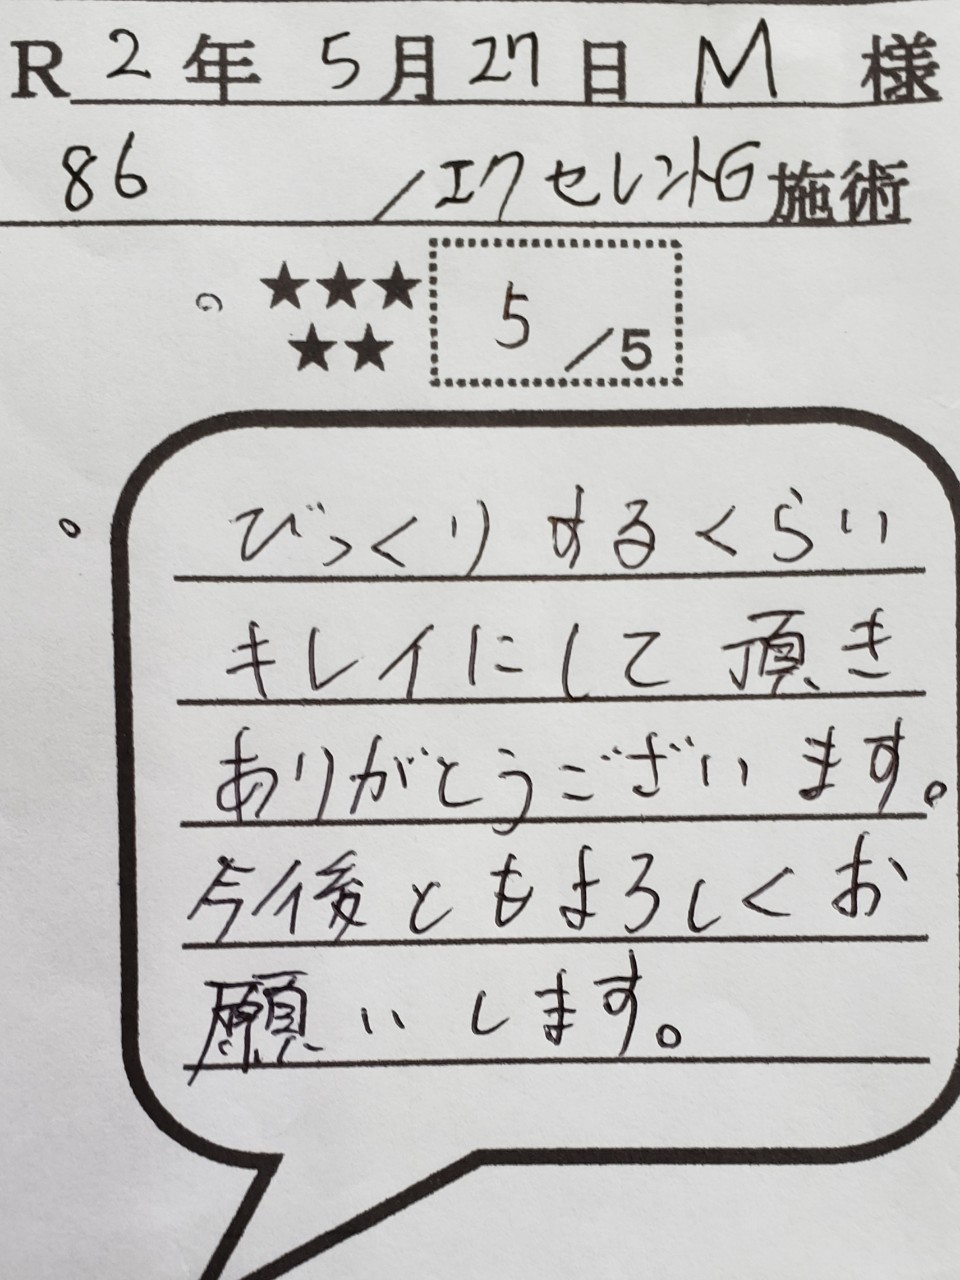 R2年5月27日 M 様
86 /エクセレントG施術
★★★
★★ 5/5
びっくりするくらい
キレイにして頂き
ありがとうございます。
今後ともよろしくお
願いします。